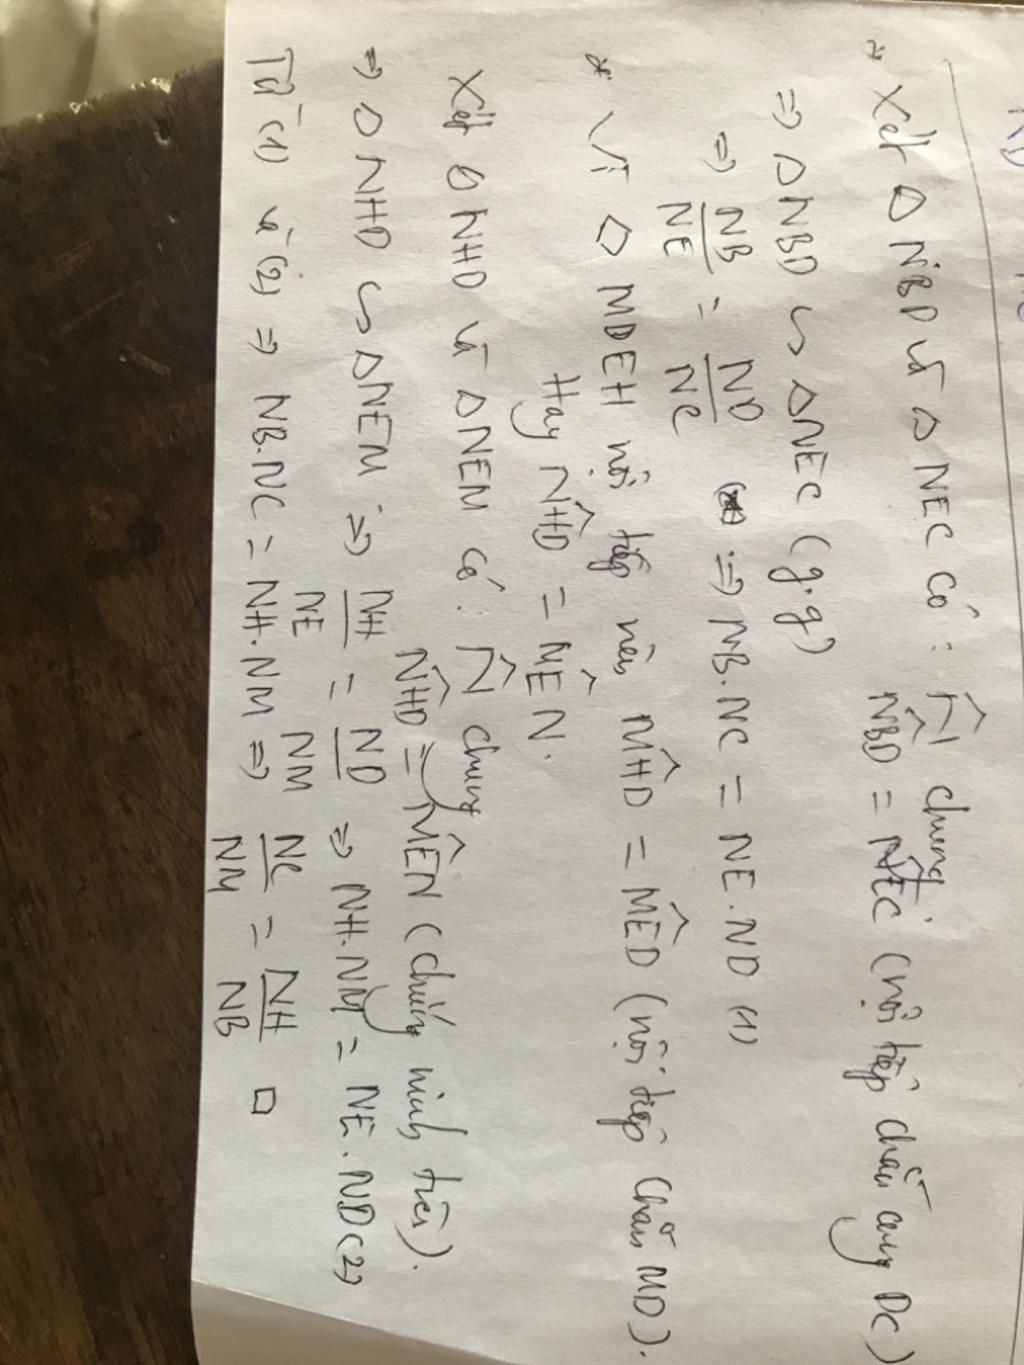 Xét Δ NBD và Δ NEC có : N̂ chung
N̂BD = N̂EC (nội tiếp chắn cung DC)
=> Δ NBD ∽ ΔNEC (g.g)
=> NB/NE = ND/NC => NB.NC = NE.ND (1)
* Vì ◇ MDEH nội tiếp nên M̂HD = M̂ED (nội tiếp chắn MD).
Hay N̂HD = M̂EN.
Xét Δ NHD và Δ NEM có : N̂ chung
N̂HD = M̂EN (chứng minh trên).
=> Δ NHD ∽ ΔNEM => NH/NE = ND/NM => NH.NM = NE.ND (2)
Từ (1) và (2) => NB.NC = NH.NM => NC/NM = NH/NB □